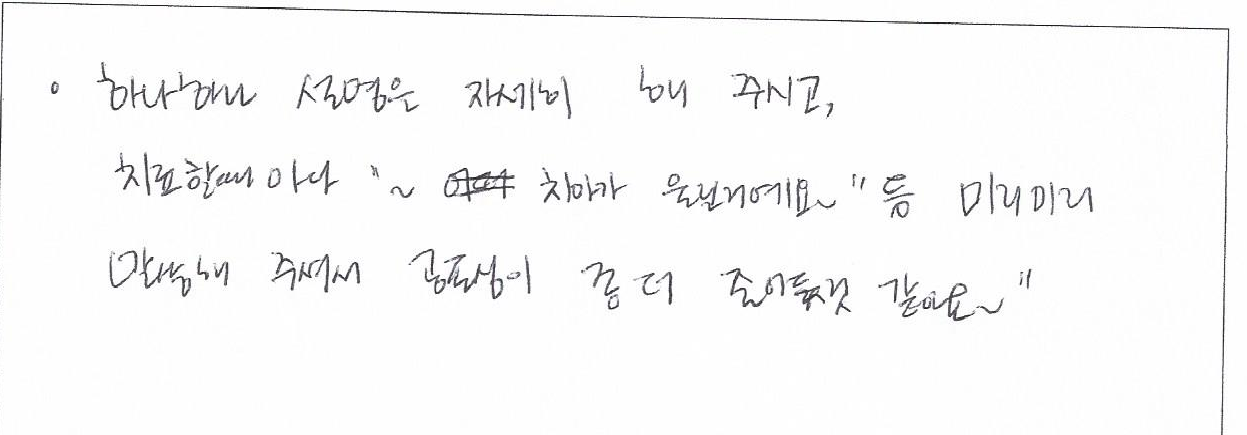 ° 하나하나 설명은 자세히 해 주시고,
치료할때마다 "~ 치아가 울릴거예요~" 등 미리미리
말씀해 주셔서 공포심이 좀 더 줄어든것 같아요~"